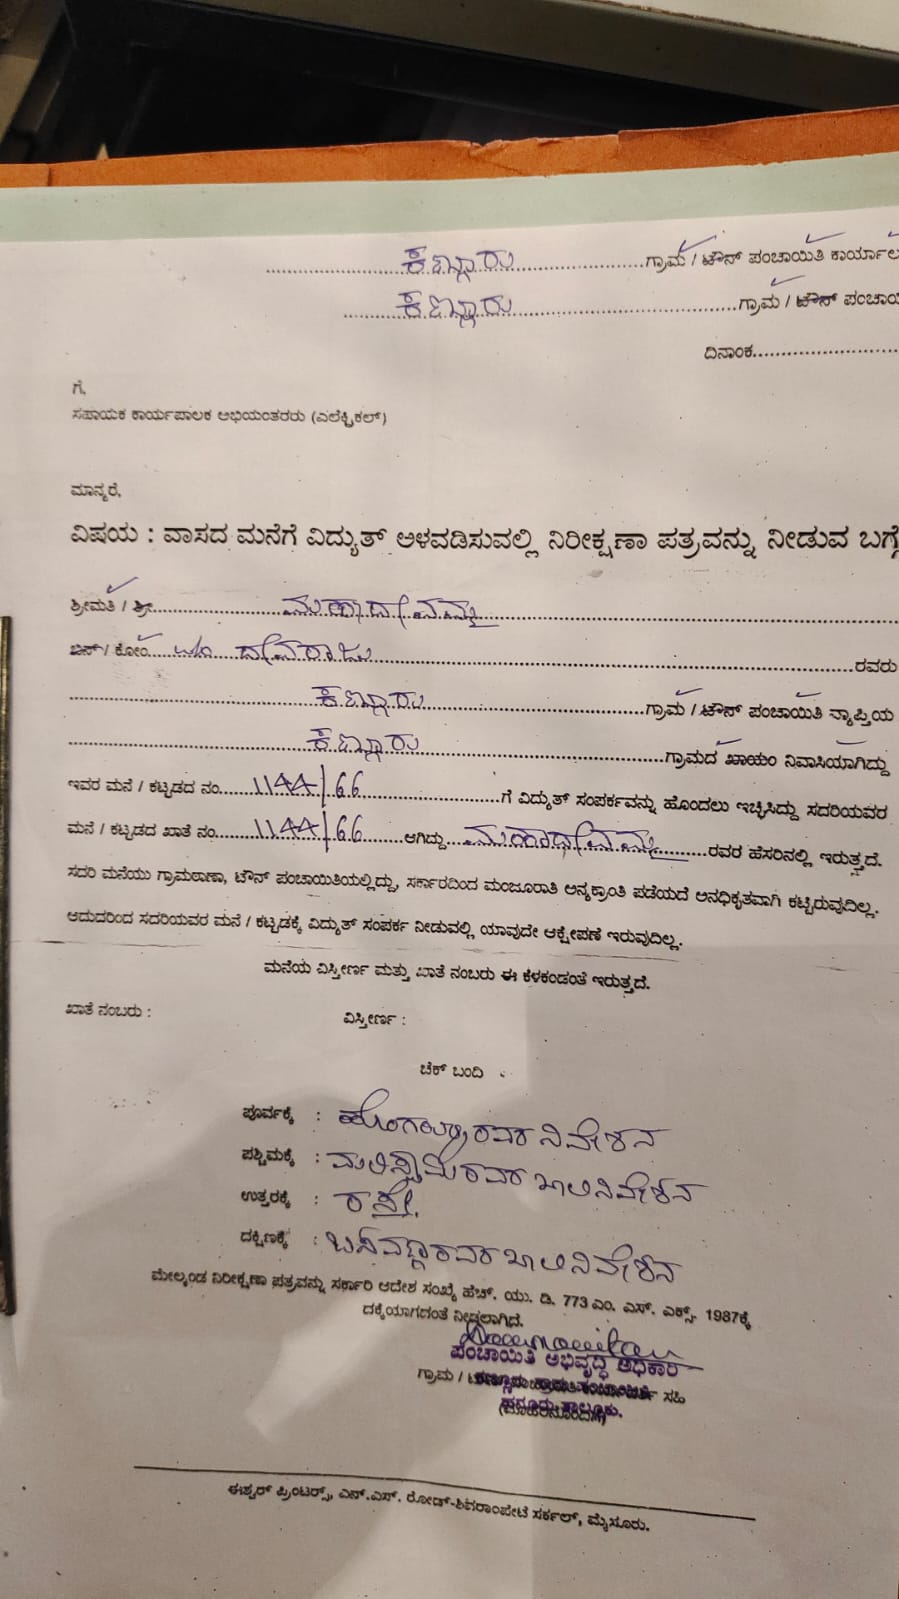 ಕಣ್ಣೂರು ಗ್ರಾಮ / ಟೌನ್ ಪಂಚಾಯಿತಿ ಕಾರ್ಯಾಲ
ಕಣ್ಣೂರು ಗ್ರಾಮ / ಟೌನ್ ಪಂಚಾಯಿ
ದಿನಾಂಕ
ಗೆ,
ಸಹಾಯಕ ಕಾರ್ಯಪಾಲಕ ಅಭಿಯಂತರರು (ಎಲೆಕ್ಟ್ರಿಕಲ್)
ಮಾನ್ಯರೆ,
ವಿಷಯ : ವಾಸದ ಮನೆಗೆ ವಿದ್ಯುತ್ ಅಳವಡಿಸುವಲ್ಲಿ ನಿರೀಕ್ಷಣಾ ಪತ್ರವನ್ನು ನೀಡುವ ಬಗ್ಗೆ
ಶ್ರೀಮತಿ / ಶ್ರೀ ಮಹಾದೇವಮ್ಮ
ಬಿನ್ / ಕೋಂ W/o ದೇವರಾಜು ರವರು
ಕಣ್ಣೂರು ಗ್ರಾಮ / ಟೌನ್ ಪಂಚಾಯಿತಿ ವ್ಯಾಪ್ತಿಯ
ಕಣ್ಣೂರು ಗ್ರಾಮದ ಖಾಯಂ ನಿವಾಸಿಯಾಗಿದ್ದು
ಇವರ ಮನೆ / ಕಟ್ಟಡದ ನಂ. 1144/66 ಗೆ ವಿದ್ಯುತ್ ಸಂಪರ್ಕವನ್ನು ಹೊಂದಲು ಇಚ್ಛಿಸಿದ್ದು ಸದರಿಯವರ
ಮನೆ / ಕಟ್ಟಡದ ಖಾತೆ ನಂ. 1144/66 ಆಗಿದ್ದು ಮಹಾದೇವಮ್ಮ ರವರ ಹೆಸರಿನಲ್ಲಿ ಇರುತ್ತದೆ.
ಸದರಿ ಮನೆಯು ಗ್ರಾಮಠಾಣಾ, ಟೌನ್ ಪಂಚಾಯಿತಿಯಲ್ಲಿದ್ದು, ಸರ್ಕಾರದಿಂದ ಮಂಜೂರಾತಿ ಅನ್ಯಕ್ರಾಂತಿ ಪಡೆಯದೆ ಅನಧಿಕೃತವಾಗಿ ಕಟ್ಟಿರುವುದಿಲ್ಲ.
ಆದುದರಿಂದ ಸದರಿಯವರ ಮನೆ / ಕಟ್ಟಡಕ್ಕೆ ವಿದ್ಯುತ್ ಸಂಪರ್ಕ ನೀಡುವಲ್ಲಿ ಯಾವುದೇ ಆಕ್ಷೇಪಣೆ ಇರುವುದಿಲ್ಲ.
ಮನೆಯ ವಿಸ್ತೀರ್ಣ ಮತ್ತು ಖಾತೆ ನಂಬರು ಈ ಕೆಳಕಂಡಂತೆ ಇರುತ್ತದೆ.
ಖಾತೆ ನಂಬರು : ವಿಸ್ತೀರ್ಣ :
ಚೆಕ್ ಬಂದಿ
ಪೂರ್ವಕ್ಕೆ : ರವರ ನಿವೇಶನ
ಪಶ್ಚಿಮಕ್ಕೆ : ಮಲಿಸ್ವಾಮಿರವರ ಖಾಲಿನಿವೇಶನ
ಉತ್ತರಕ್ಕೆ : ರಸ್ತೆ.
ದಕ್ಷಿಣಕ್ಕೆ : ಬಸವಣ್ಣರವರ ಖಾಲಿನಿವೇಶನ
ಮೇಲ್ಕಂಡ ನಿರೀಕ್ಷಣಾ ಪತ್ರವನ್ನು ಸರ್ಕಾರಿ ಆದೇಶ ಸಂಖ್ಯೆ ಹೆಚ್. ಯು. ಡಿ. 773 ಎಂ. ಎಸ್. ಎಕ್ಸ್. 1987ಕ್ಕೆ
ದಕ್ಕೆಯಾಗದಂತೆ ನೀಡಲಾಗಿದೆ.
ಪಂಚಾಯಿತಿ ಅಭಿವೃದ್ಧಿ ಅಧಿಕಾರಿ
ಗ್ರಾಮ / ಸಹಿ
ಈಶ್ವರ್ ಪ್ರಿಂಟರ್ಸ್, ಎನ್.ಎಸ್. ರೋಡ್-ಶಿವರಾಂಪೇಟೆ ಸರ್ಕಲ್, ಮೈಸೂರು.